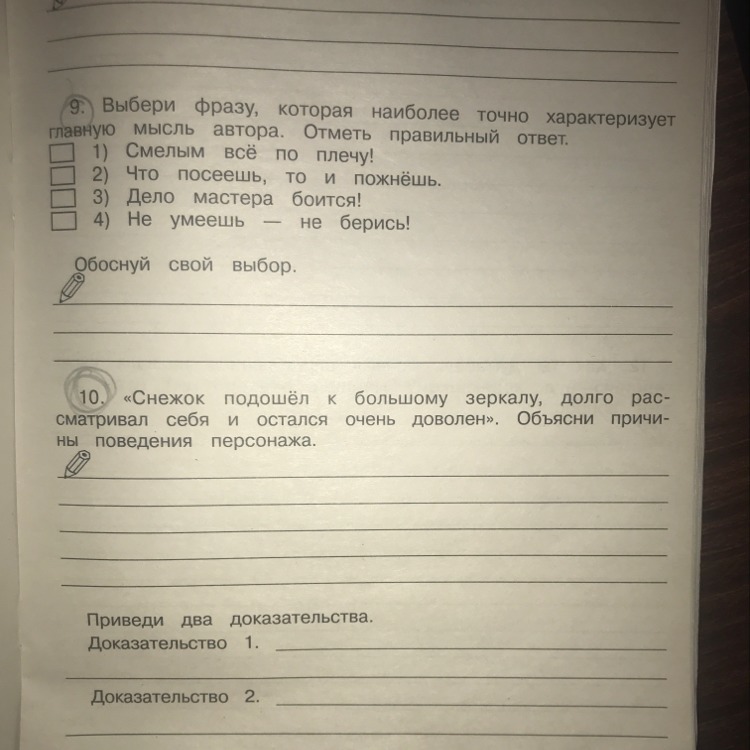 9. Выбери фразу, которая наиболее точно характеризует
главную мысль автора. Отметь правильный ответ.
1) Смелым всё по плечу!
2) Что посеешь, то и пожнёшь.
3) Дело мастера боится!
4) Не умеешь — не берись!
Обоснуй свой выбор.
10. «Снежок подошёл к большому зеркалу, долго рас-
сматривал себя и остался очень доволен». Объясни причи-
ны поведения персонажа.
Приведи два доказательства.
Доказательство 1.
Доказательство 2.